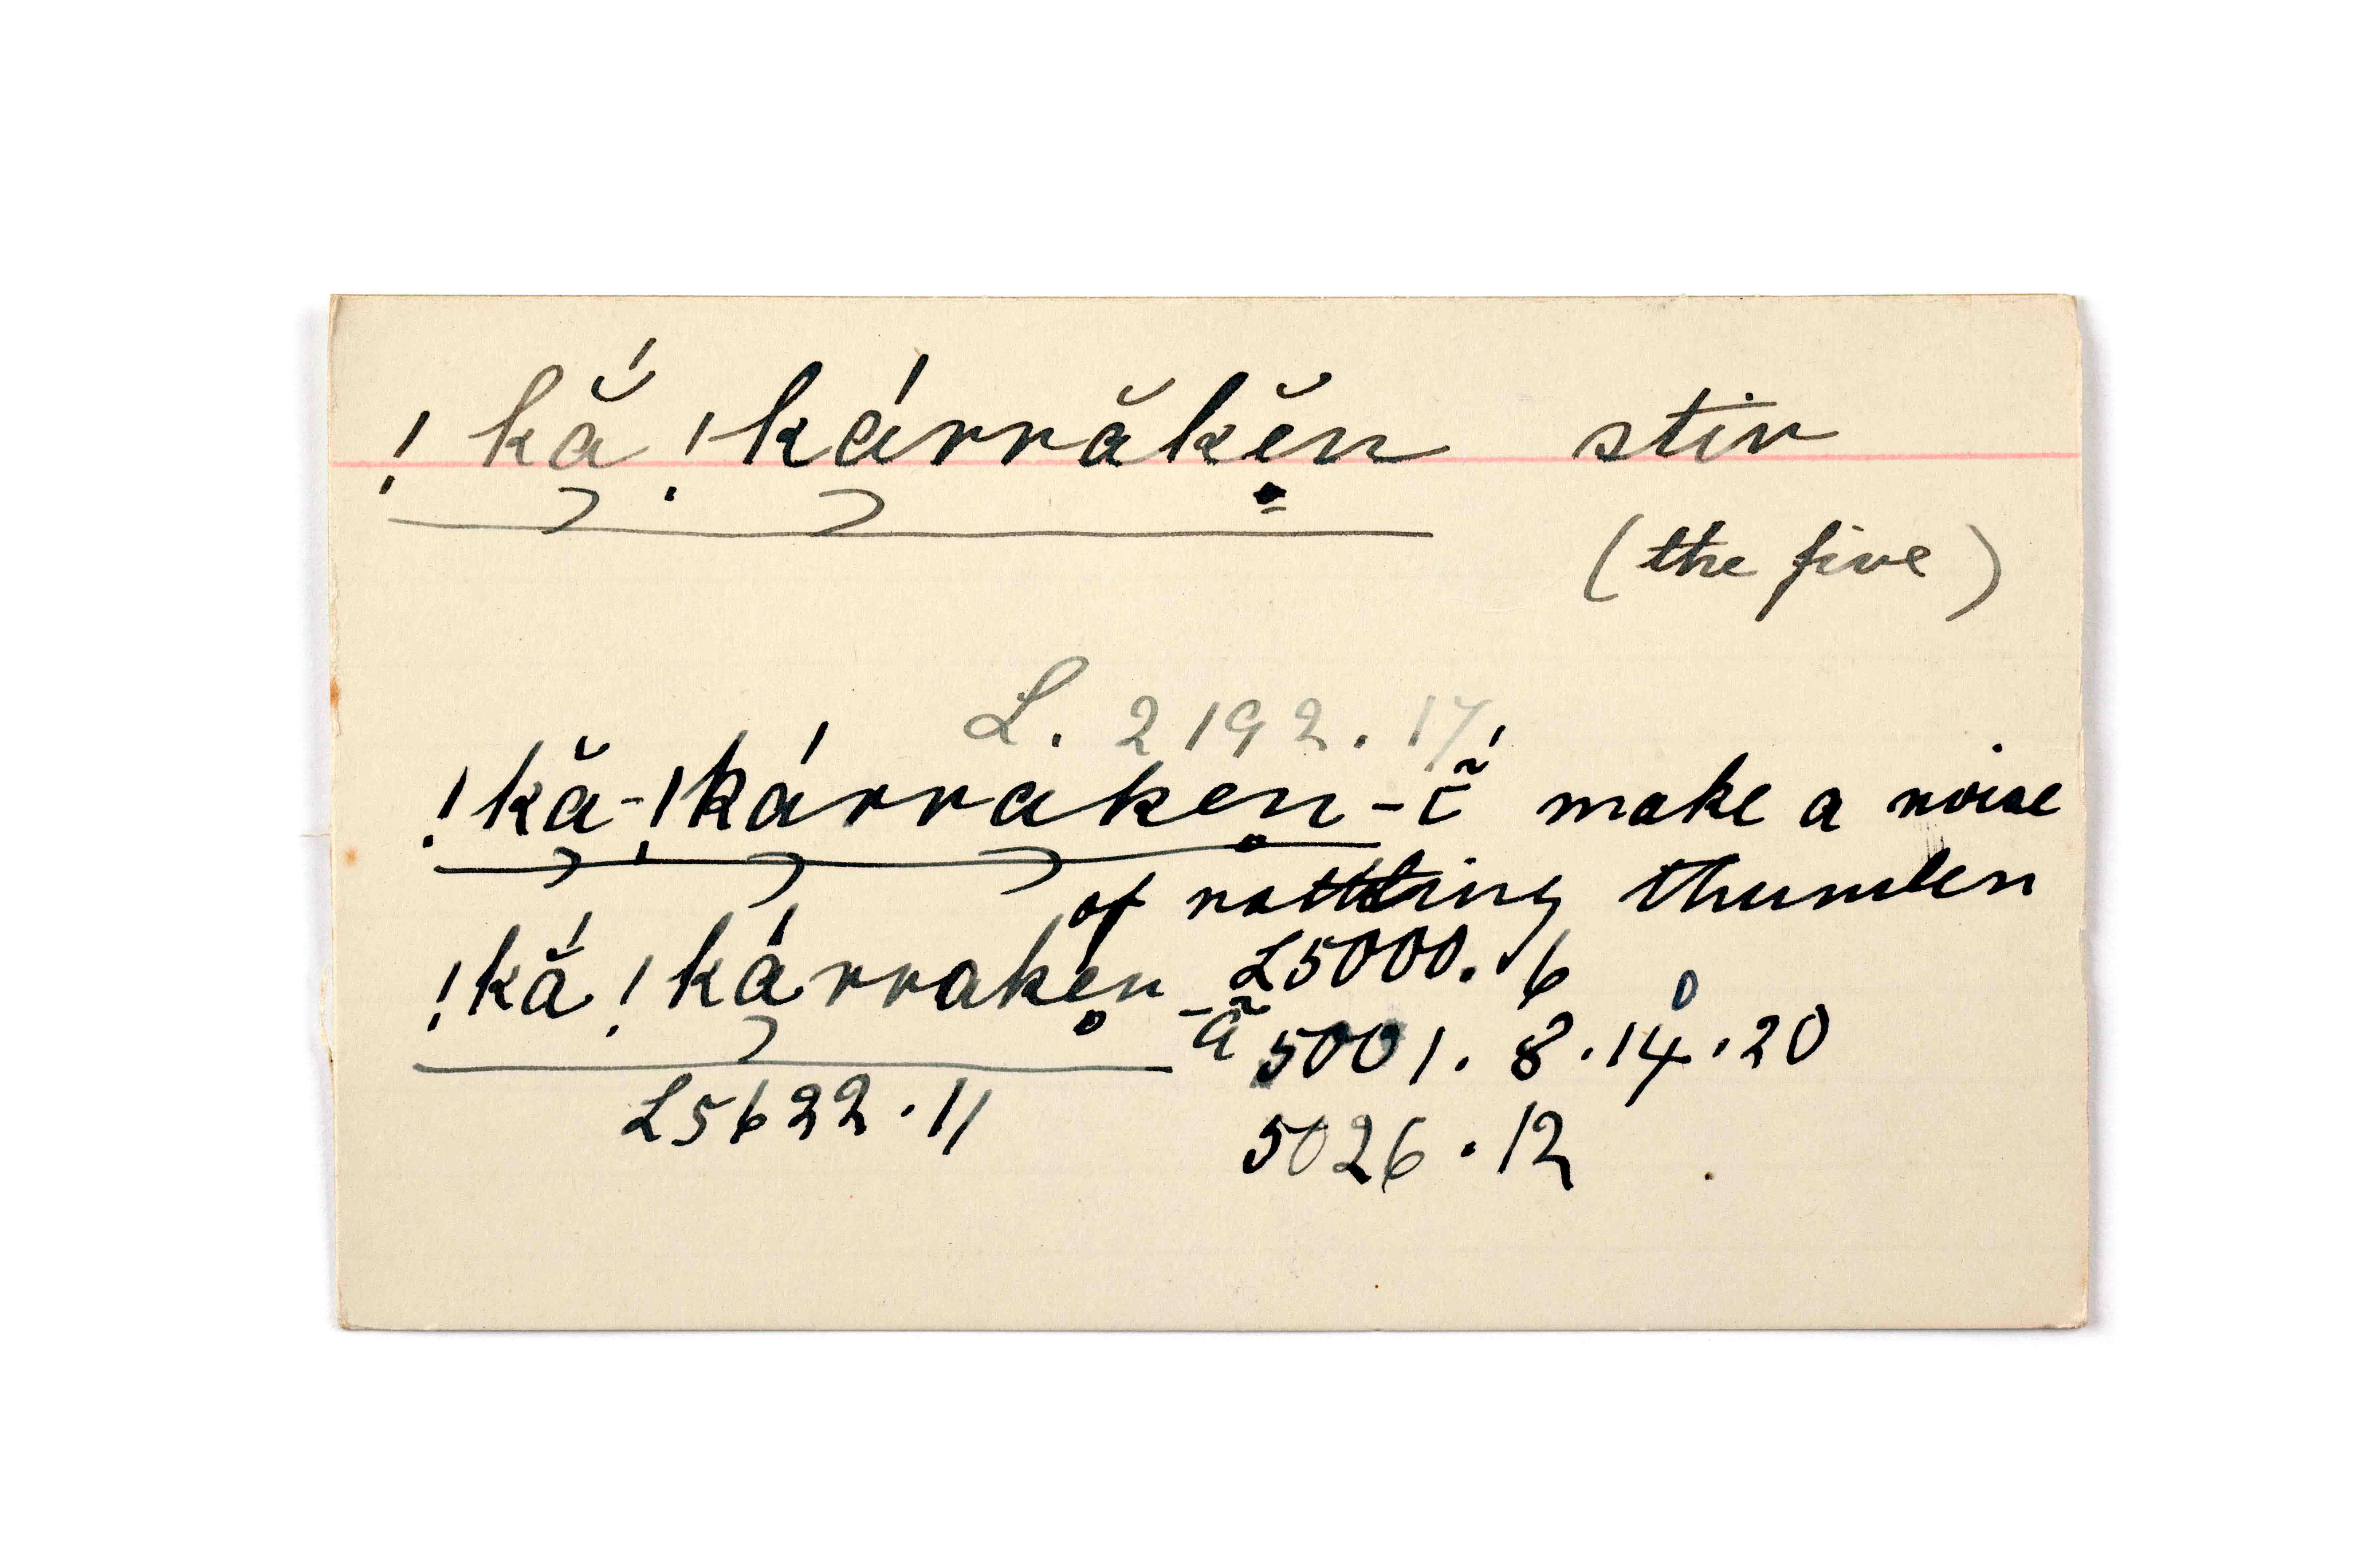 !kắ !kárrăkĕṇ stir
(the fire)
L. 2192. 17
!kă-!kárrakeṇ-ĩ́ make a noise
of rattling thunder
!kắ !kárrakẹn -ã L5000. 6
5001. 8. 14. 20
L5622. 11
5026. 12